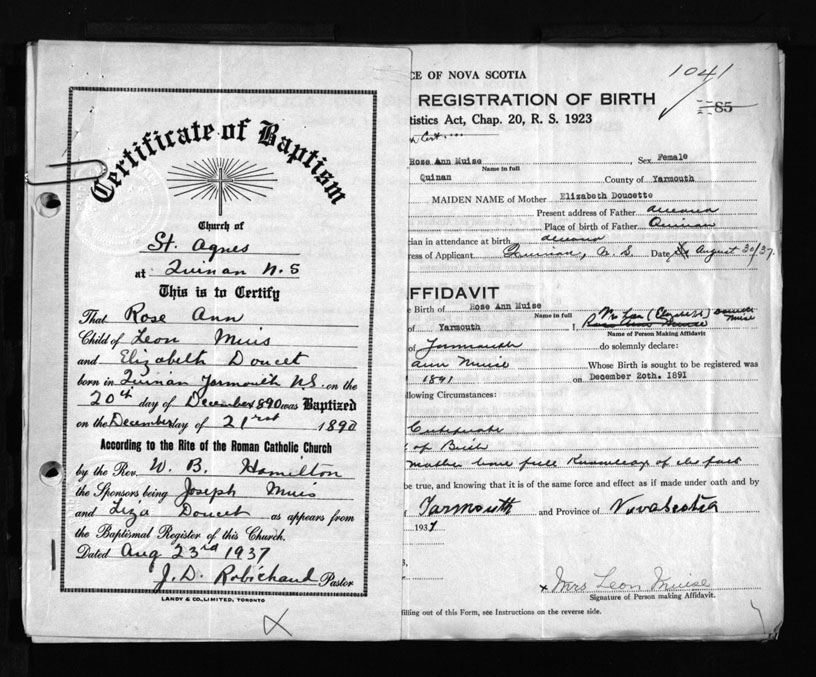 Certificate of Baptism
Church of
St. Agnes
at Quinan N.S
This is to Certify
That Rose Ann
Child of Leon Muis
and Elizabeth Doucet
born in Quinan Yarmouth N.S. on the
20th day of December 1890 was Baptized
on the December day of 21rst 1890
According to the Rite of the Roman Catholic Church
by the Rev. W. B. Hamilton
the Sponsors being Joseph Muis
and Liza Doucet as appears from
the Baptismal Register of this Church.
Dated Aug 23rd 1937
J. D. Robichaud Pastor
LANDY & CO., LIMITED, TORONTO
1041
CE OF NOVA SCOTIA
REGISTRATION OF BIRTH
85
tistics Act, Chap. 20, R. S. 1923
Cert.
Rose Ann Muise, Sex Female
Name in full
Quinan County of Yarmouth
MAIDEN NAME of Mother Elizabeth Doucette
Present address of Father deceased
Place of birth of Father Quinan
cian in attendance at birth deceased
ress of Applicant. Quinan, N. S. Date August 30/37.
FFIDAVIT
e Birth of Rose Ann Muise
Name in full
of Yarmouth I, Mrs Leon (Elizabeth) Doucette Muise
Name of Person Making Affidavit
of Yarmouth do solemnly declare:
Ann Muise Whose Birth is sought to be registered was
1891 on December 20th. 1891
llowing Circumstances:
Certificate
of Birth
mother have full Knowledge of the fact
be true, and knowing that it is of the same force and effect as if made under oath and by
Yarmouth and Province of Nova Scotia
1937
x Mrs Leon Muise
Signature of Person making Affidavit.
filling out of this Form, see Instructions on the reverse side.